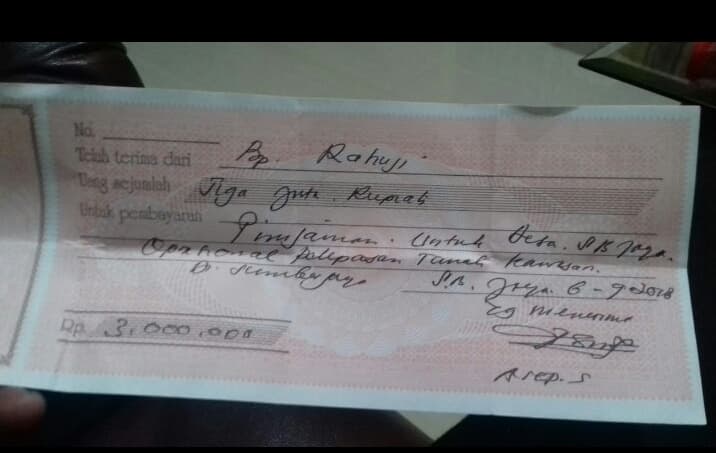 No.
Telah terima dari Bp. Rahuji.
Uang sejumlah Tiga Juta. Rupiah
Untuk pembayaran Pinjaman. Untuk Desa. S.B Jaya.
Oprasional Pelepasan Tanah Kawasan.
D. Sumberjaya
S.B. Jaya. 6-9-2018
Yg menerima
Rp. 3.000.000
Asep. S